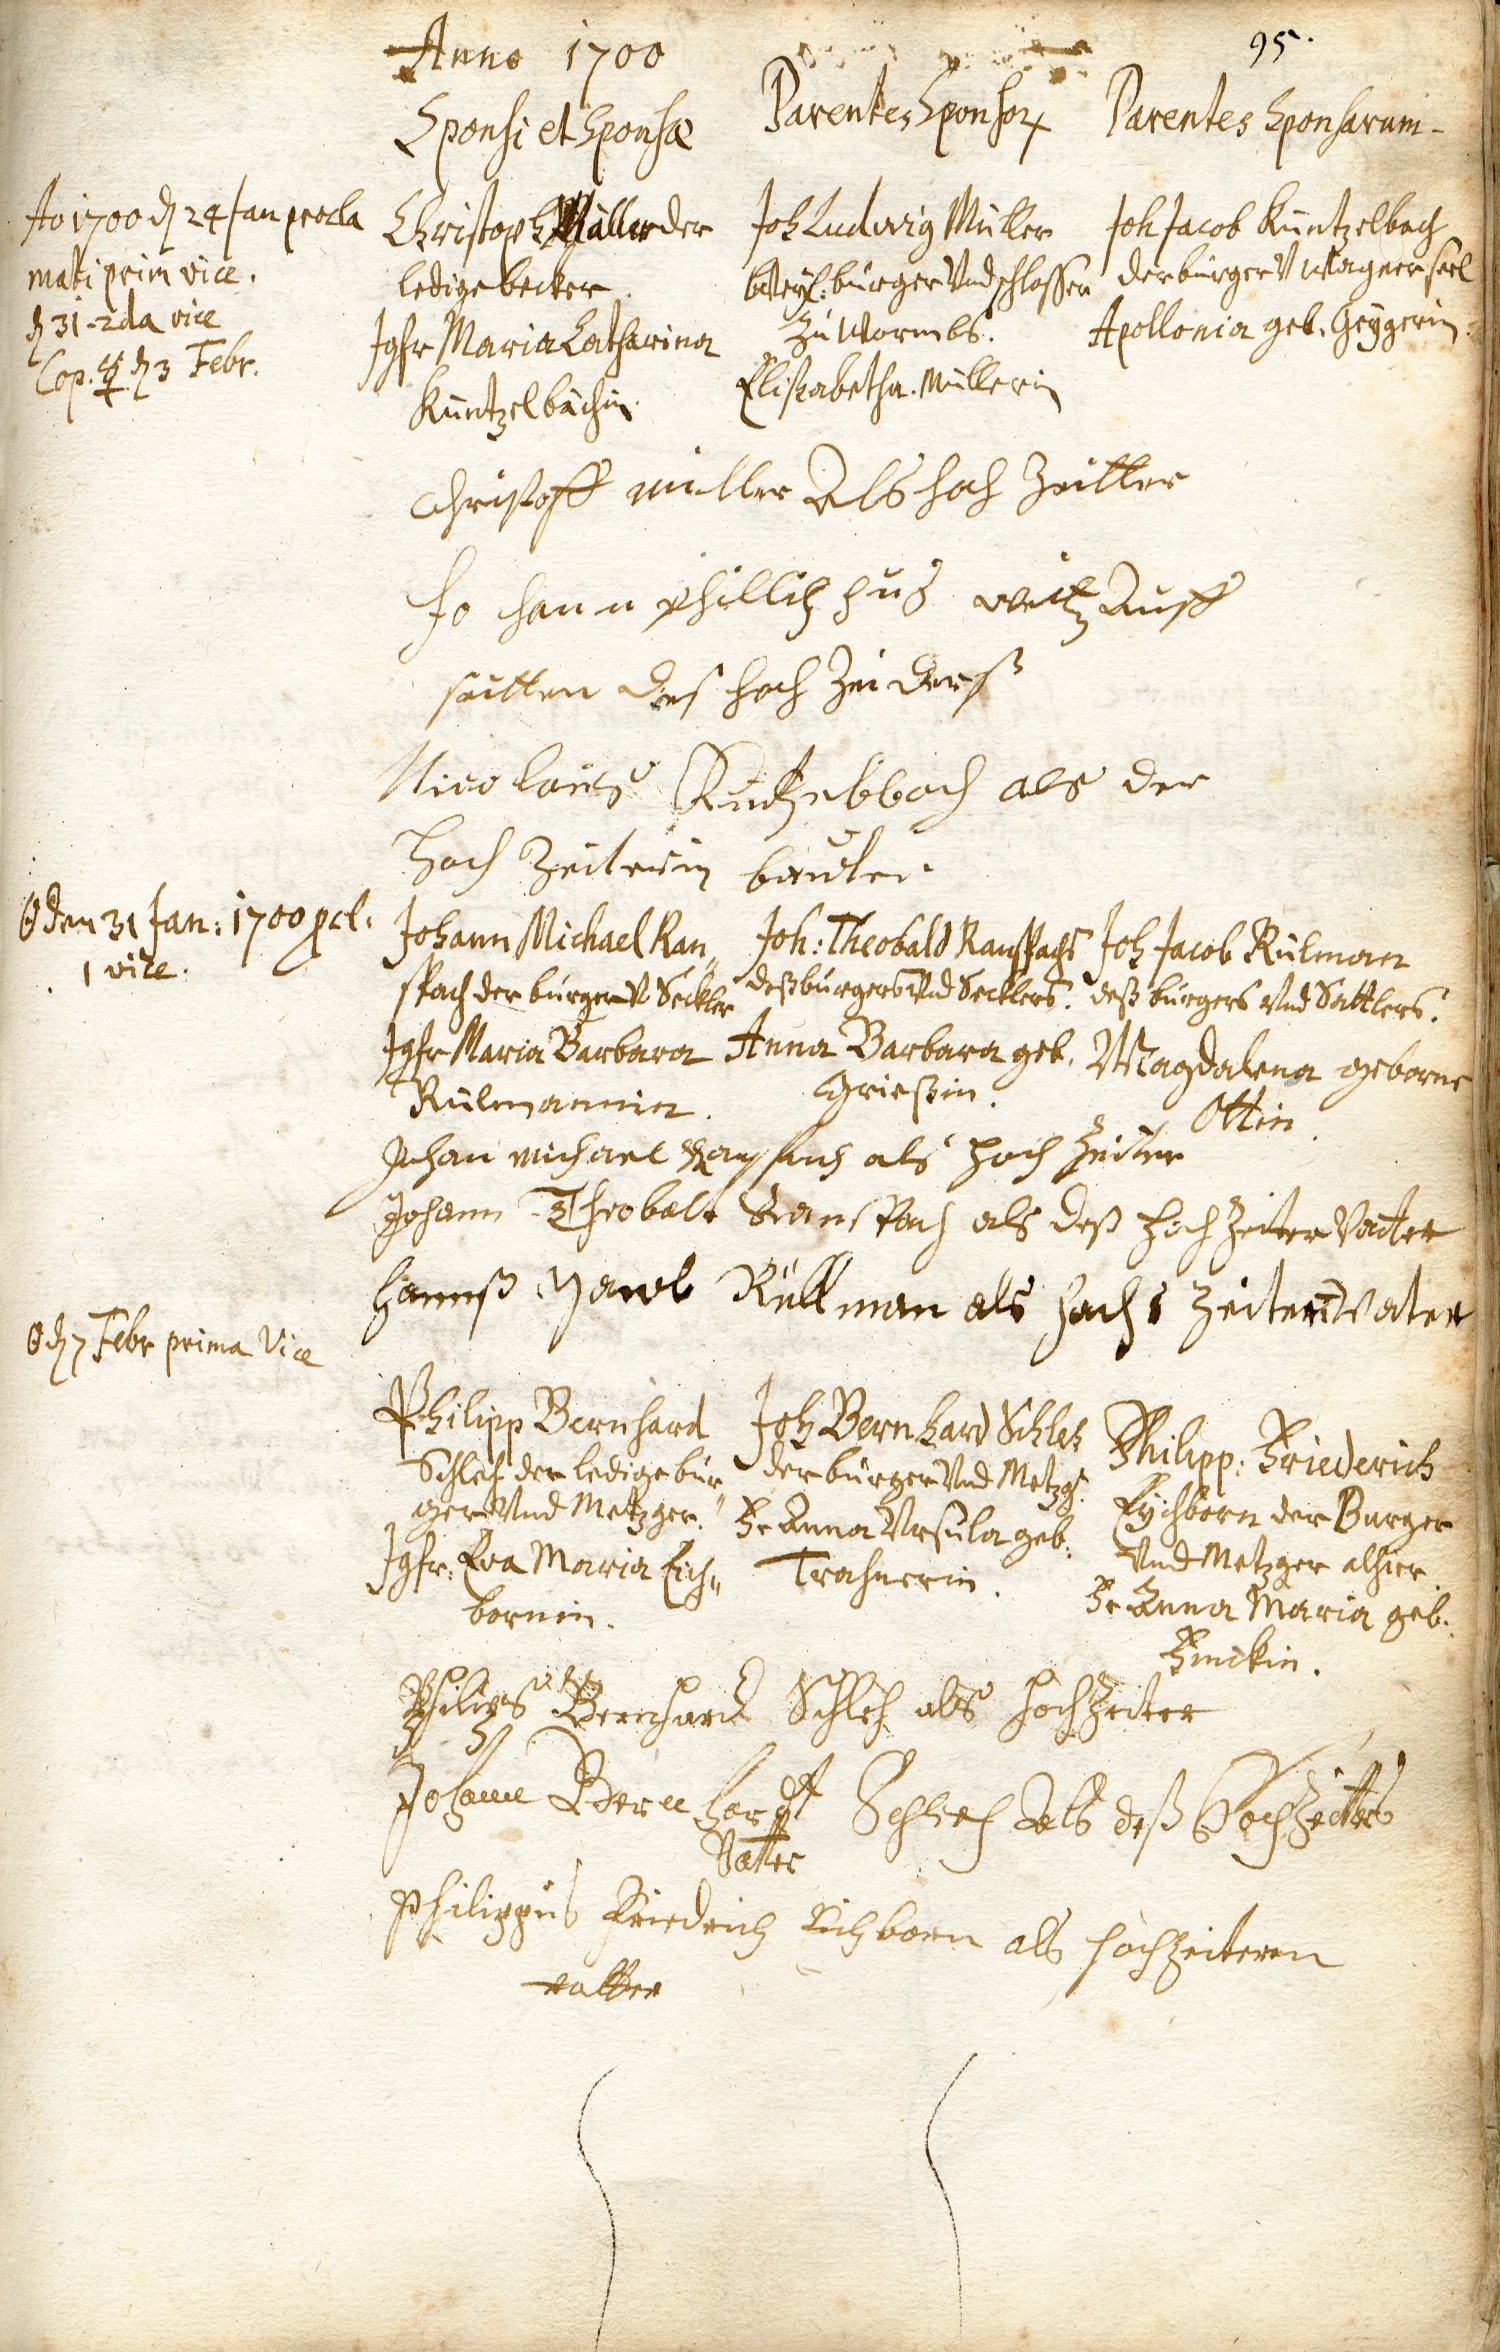 95.
Anno 1700
Sponsi et Sponsæ
Parentes Sponsor
Parentes Sponsarum
Ao 1700 d 24 Jan procla
mati prim vice.
d 31 - 2da vice
Cop. ☿ d 3 Febr.
Christoph Müller der
ledige becker.
Jgfr Maria Catharina
Kuntzelbächin.
Joh Ludwig Müller
burger Vnd schlosser
Zu Wormbs.
Elisabetha Müllerin
Joh Jacob Kuntzelbach
der burger V Wagner seel
Apollonia geb. Geygerin.
Christoff Müller Als hoch Zeitter
Jo hann phillip pus Auff
seitten des hoch Zeiderß
Nicolaus als der
Hoch Zeiterin bruder
☉ den 31 Jan: 1700 pcl.
1 vice.
Johann Michael Ran„
spach der burger V Seckler
Jgfr Maria Barbara
Rülmannin.
Joh: Theobald Ranspachs
deß burgers Vnd Secklers.
Anna Barbara geb.
Grießin.
Joh Jacob Rülman
deß burgers Vnd Sattlers.
Magdalena geborne
Ottin.
Johan Michael Ranspach als Hoch Zeiter
Johann Theobalt Ranspach als deß Hoch Zeiter Vatter
Hannß Jacob Rüllman als hoch Zeiterin Vater
☉ d 7 Febr prima Vice
Philipp Bernhard
Schleh der ledige bur„
ger Vnd Metzger.
Jgfr: Eva Maria Eich„
bornin.
Joh Bernhard Schleh
der burger Vnd Metzgr.
Fr Anna Vrsula geb:
Trahnerin.
Philipp: Friederich
Eychborn der Burger
Vnd Metzger alhier
Fr Anna Maria geb.
Finckin.
Philips Bernhard Schleh als Hoch Zeiter
Johann Bernhardt Schleh Als deß HochZeitters
Vatter
Philippus Friedrich Eichborn als hochzeiteren
vatter